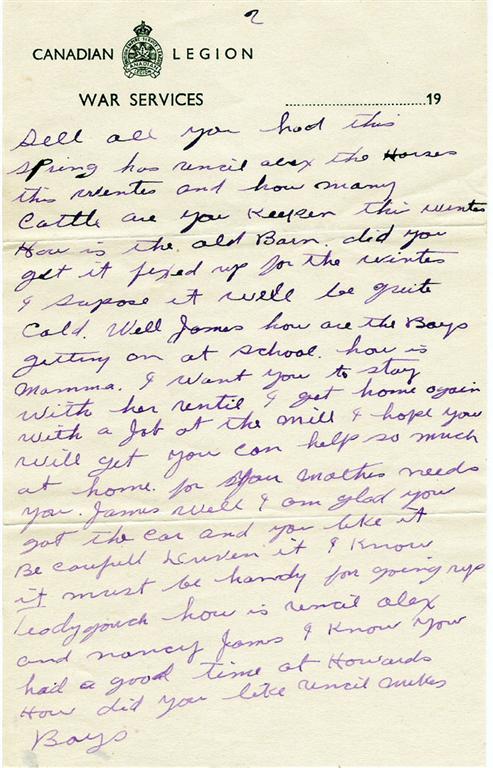 2
CANADIAN LEGION
WAR SERVICES
19
Sell all you had this
spring has uncil alex the Horses
this winter and how many
Cattle are you Keepen this winter
How is the old Barn. did you
get it fixed up for the winter
I supose it will be quite
Cold. Well James how are the Boys
getting on at school. how is
Mamma. I want you to stay
with her rentil I get home again
with a Job at the mill I hope you
will get you can help so much
at home. for your mother needs
you. James well I am glad you
got the car and you like it
Be carefull Driven it I Know
it must be handy for going up
how is uncil alex
and nancy James I Know you
had a good time at Howards
How did you like uncil mikes
Boys